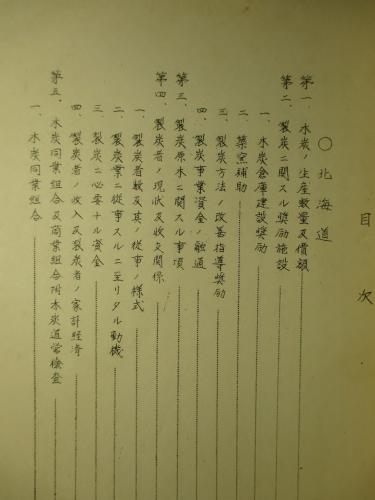 目次
○北海道
第一、木炭ノ生産数量及価額
第二、製炭ニ関スル奨励施設
一、木炭倉庫建設奨励
二、築窯補助
三、製炭方法ノ改善指導奨励
四、製炭事業資金ノ融通
第三、製炭原木ニ関スル事項
第四、製炭者ノ現状及収支関係
一、製炭者数及其ノ従事ノ様式
二、製炭業ニ従事スルニ至リタル動機
三、製炭ニ必要ナル資金
四、製炭者ノ収入及製炭者ノ家計経済
第五、木炭同業組合及商業組合附木炭道営検査
一、木炭同業組合